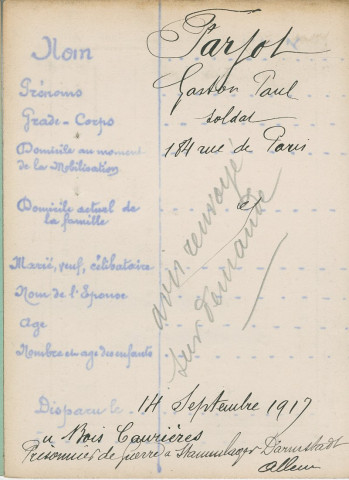 Nom Farjot
Prénoms Gaston Paul
Grade-Corps soldat
Domicile au moment de la Mobilisation 184 rue de Paris
Domicile actuel de la famille d°
Marié, veuf, célibataire
Nom de l'Epouse
Age
Nombre et age des enfants
avis renvoyé
sur demande
Disparu le 14 Septembre 1917
au Bois Caurières
Prisonnier de guerre à Stammlager Darmstadt
Allem